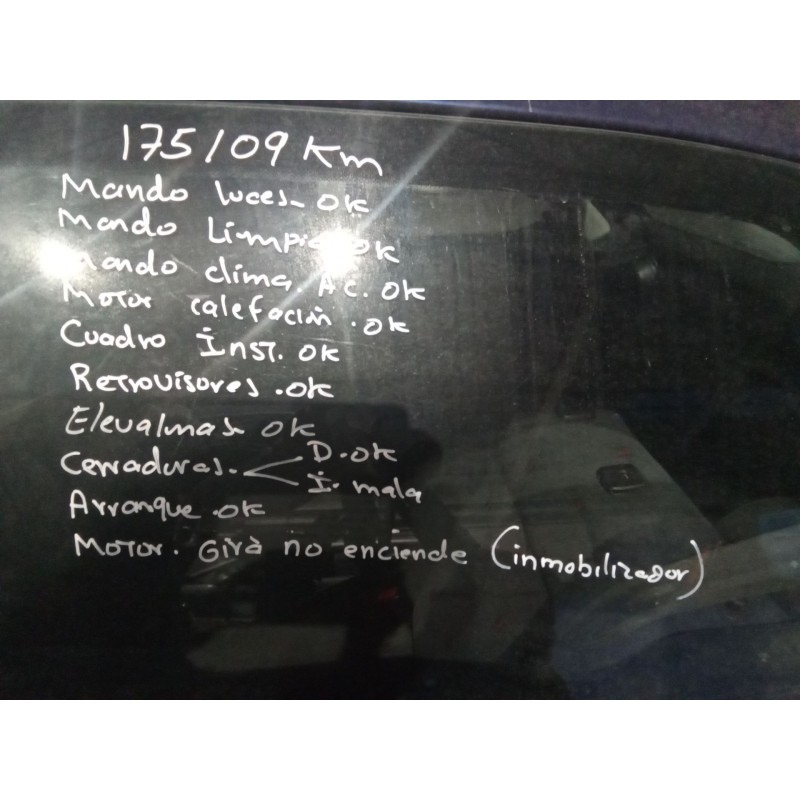 175109 Km
Mando luces - OK
Mando Limpia OK
Mando clima. A.C. OK
Motor calefación . OK
Cuadro Inst. OK
Retrovisores . OK
Elevalunas OK
Cerraduras . D . OK
I . mala
Arranque . OK
Motor . Gira no enciende (inmobilizador)